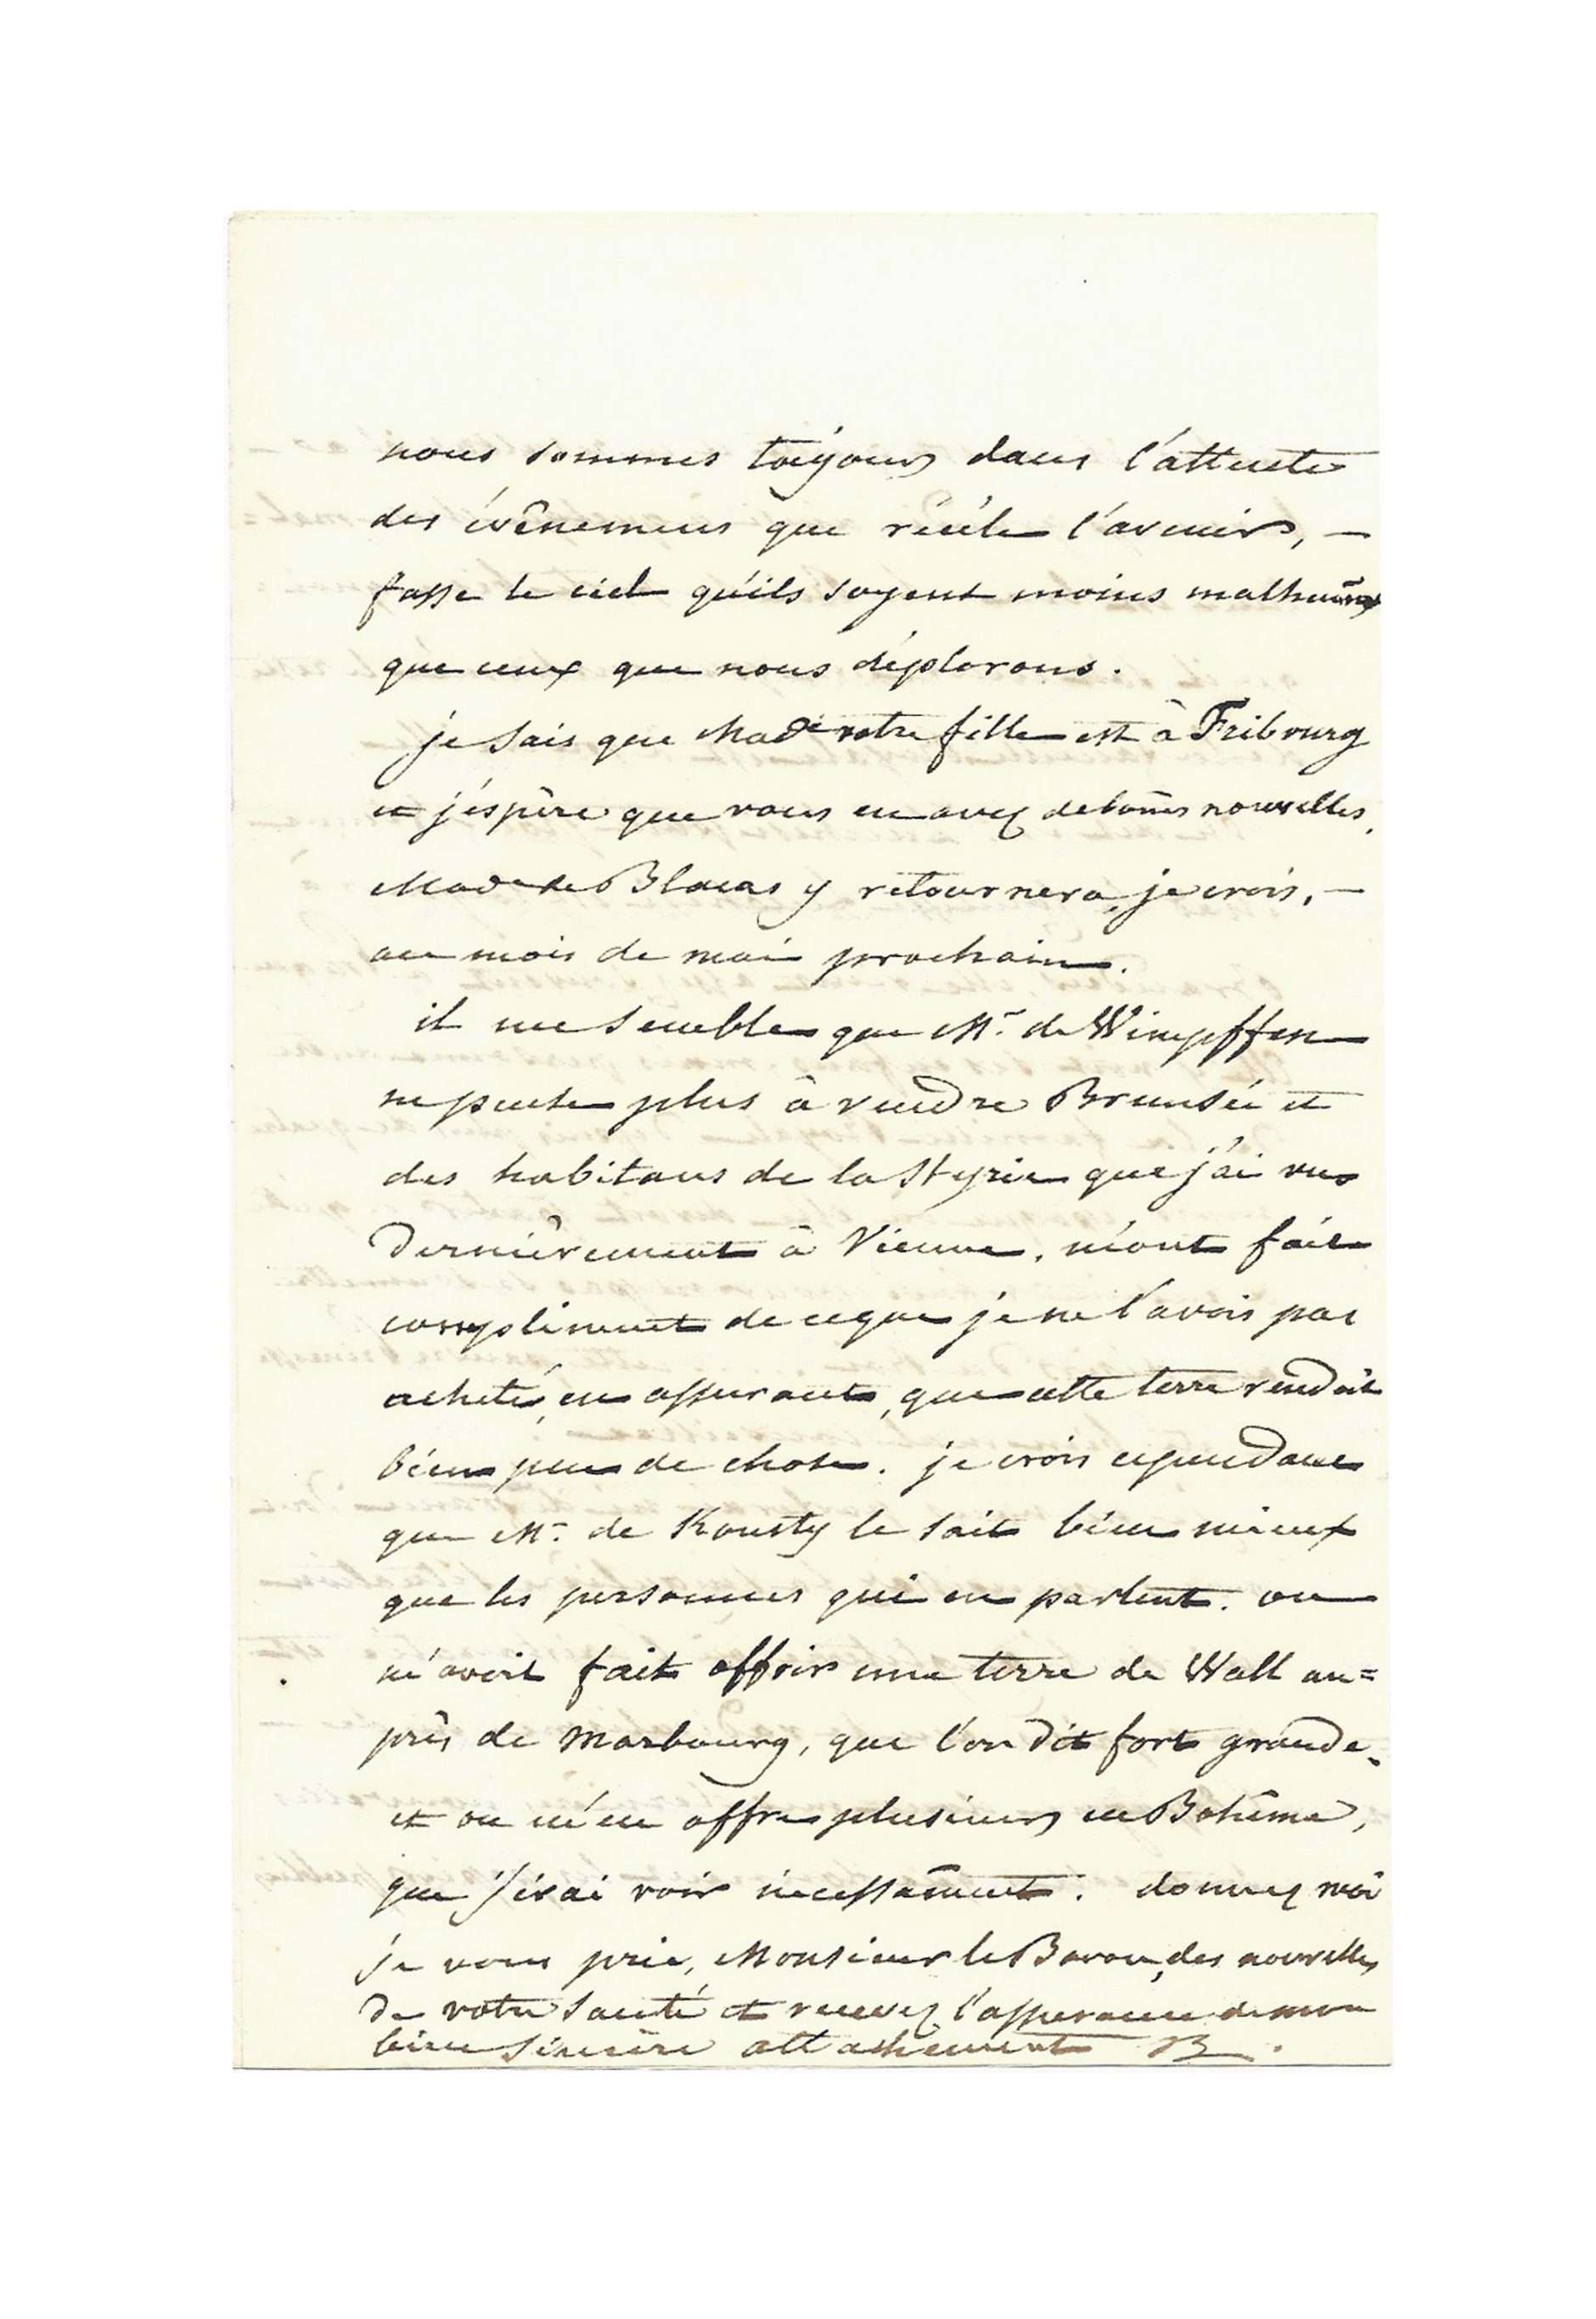 nous sommes toujours dans l'attente
des évênemens que récéle l'avenir, —
fasse le ciel qu'ils soyent moins malheureux
que ceux que nous déplorons.
je sais que Made votre fille est à Fribourg
et j'éspère que vous en avez de bonnes nouvelles,
Made de Blacas y retournera, je crois, —
au mois de mai prochain.
il me semble que Mr. de Wimpffen
ne pense plus à vendre Brunsée et
des habitans de la Styrie que j'ai vus
dernièrement à Vienne, m'ont fait
compliment de ce que je ne l'avois pas
acheté, en assurant, que cette terre rendoit
bien peu de chose. je crois cependant
que Mr. de Kousty le sait bien mieux
que les personnes qui en parlent. on
m'avoit fait offrir une terre de Wall au=
près de Marbourg, que l'on dit fort grande.
et on m'en offre plusieurs en Bohême,
que j'irai voir incessamment. donnez moi
je vous prie, Monsieur le Baron, des nouvelles
de votre santé et recevez l'assurance de mon
bien sincère attachement B.